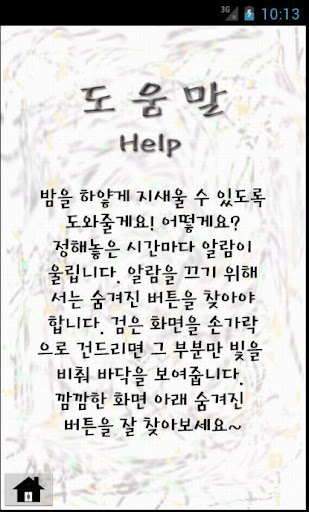 3G 10:13
도움말
Help
밤을 하얗게 지새울 수 있도록
도와줄게요! 어떻게요?
정해놓은 시간마다 알람이
울립니다. 알람을 끄기 위해
서는 숨겨진 버튼을 찾아야
합니다. 검은 화면을 손가락
으로 건드리면 그 부분만 빛을
비춰 바닥을 보여줍니다.
깜깜한 화면 아래 숨겨진
버튼을 잘 찾아보세요~